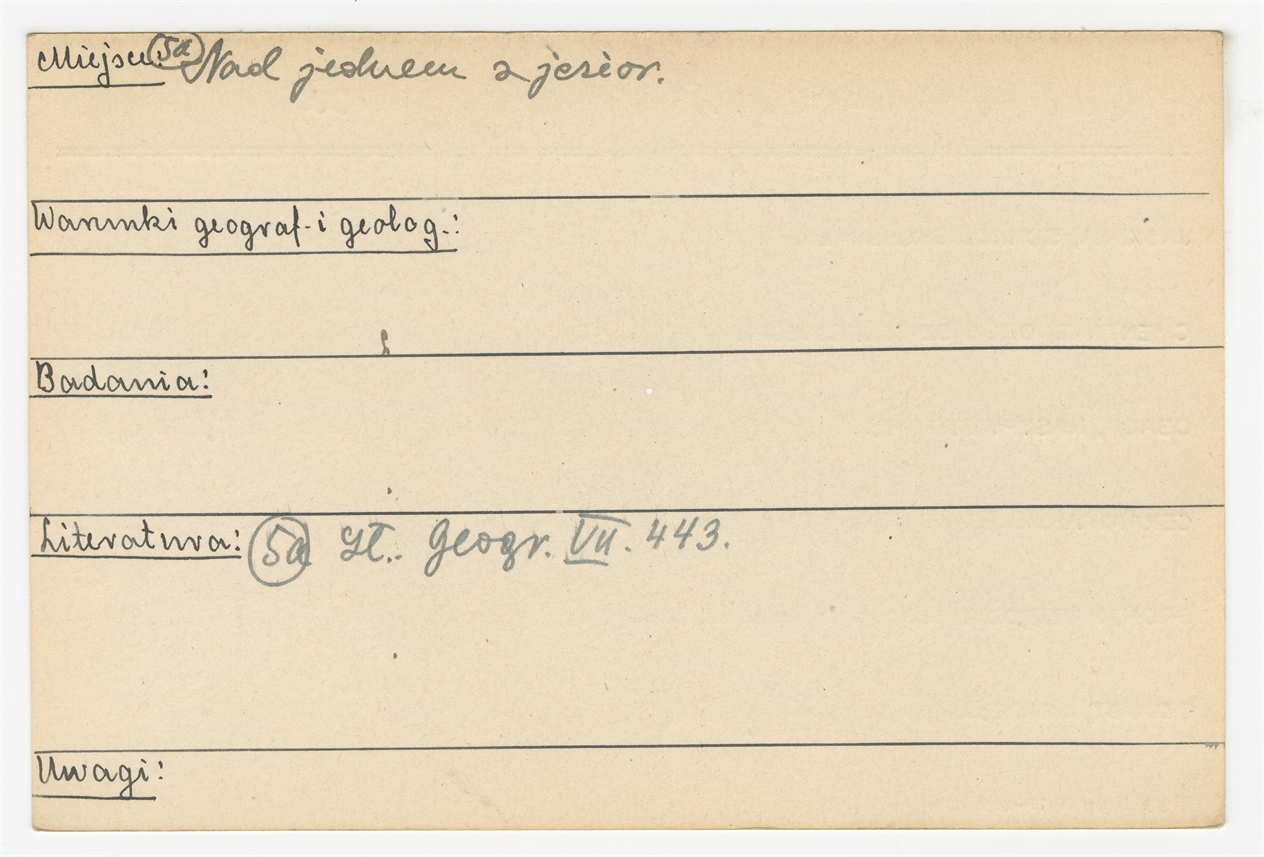 Miejsce: 5a Nad jednem z jezior.
Warunki geograf. i geolog.:
Badania:
Literatura: 5a Sł. Geogr. VII. 443.
Uwagi: